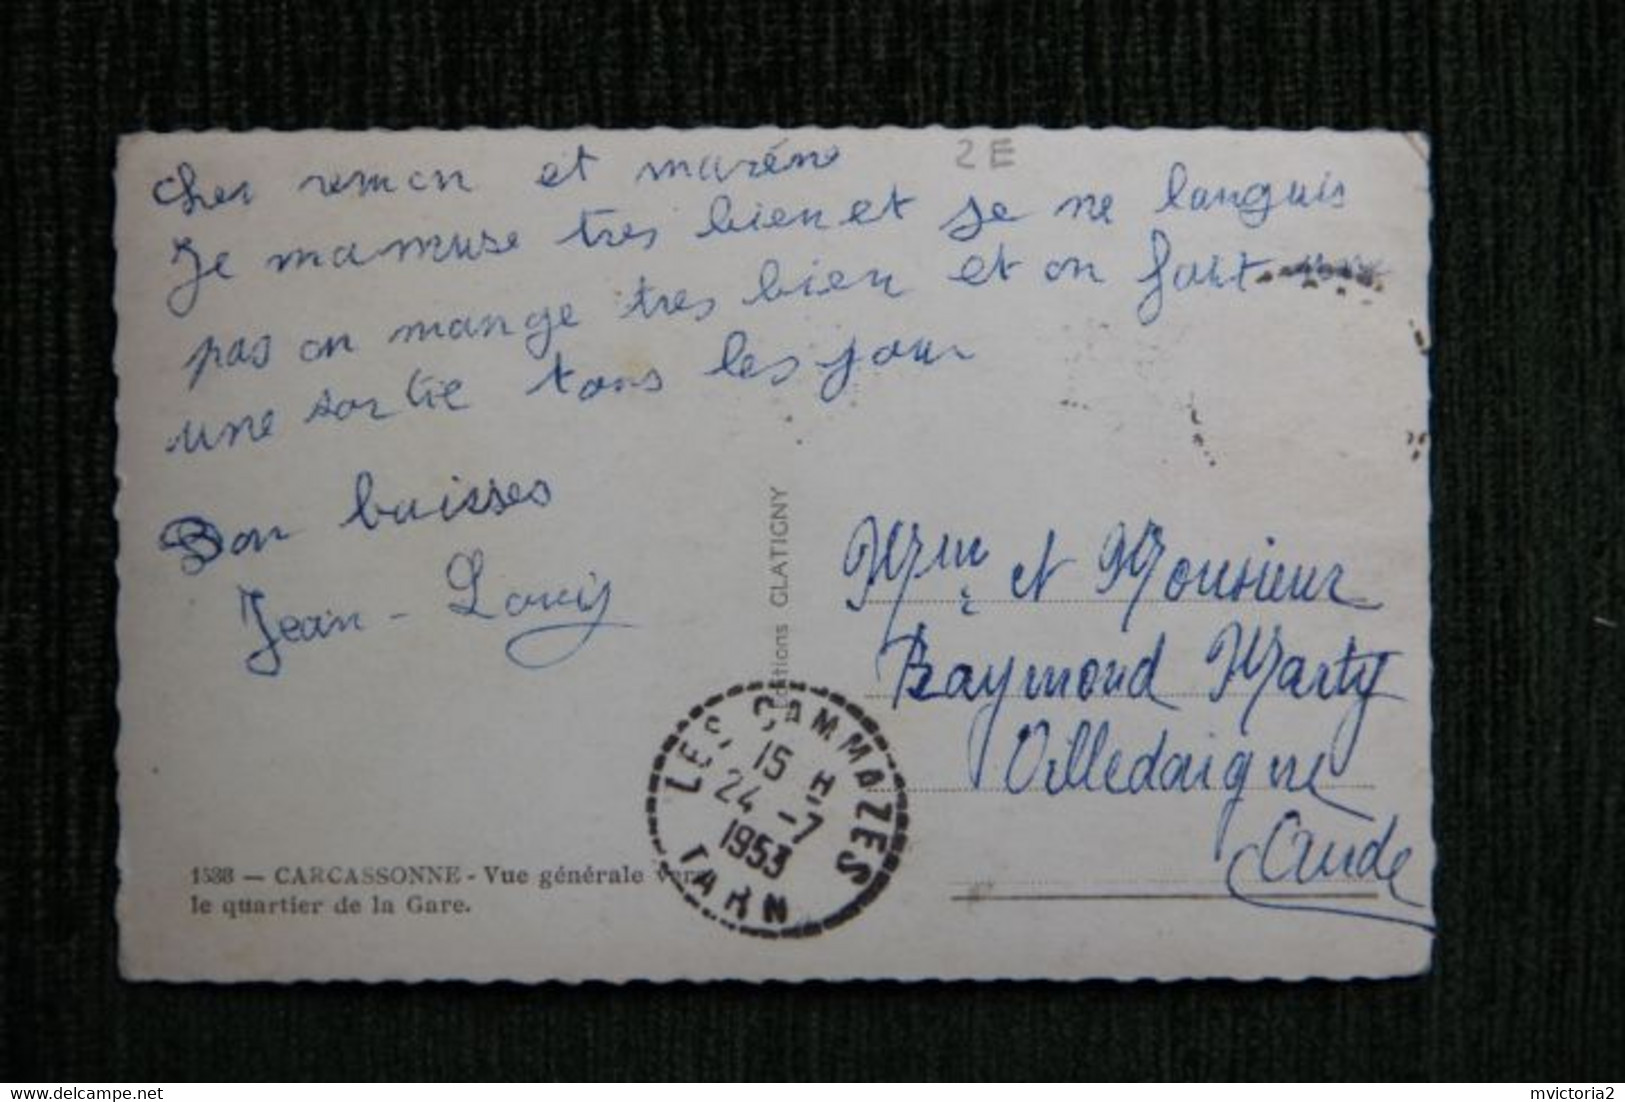 2E
Cher remon et maréne
Je mamuse tres bien et je ne languis
pas on mange tres bien et on fait
une sortie tous les jour
Bon baisses
Jean-Louis
Editions GLATIGNY
Mme et Monsieur
Raymond Marty
Villedaigne
Aude
LES CAMMAZES
15 H
24 -7
1953
TARN
1538 — CARCASSONNE - Vue générale vers
le quartier de la Gare.
mvictoria2